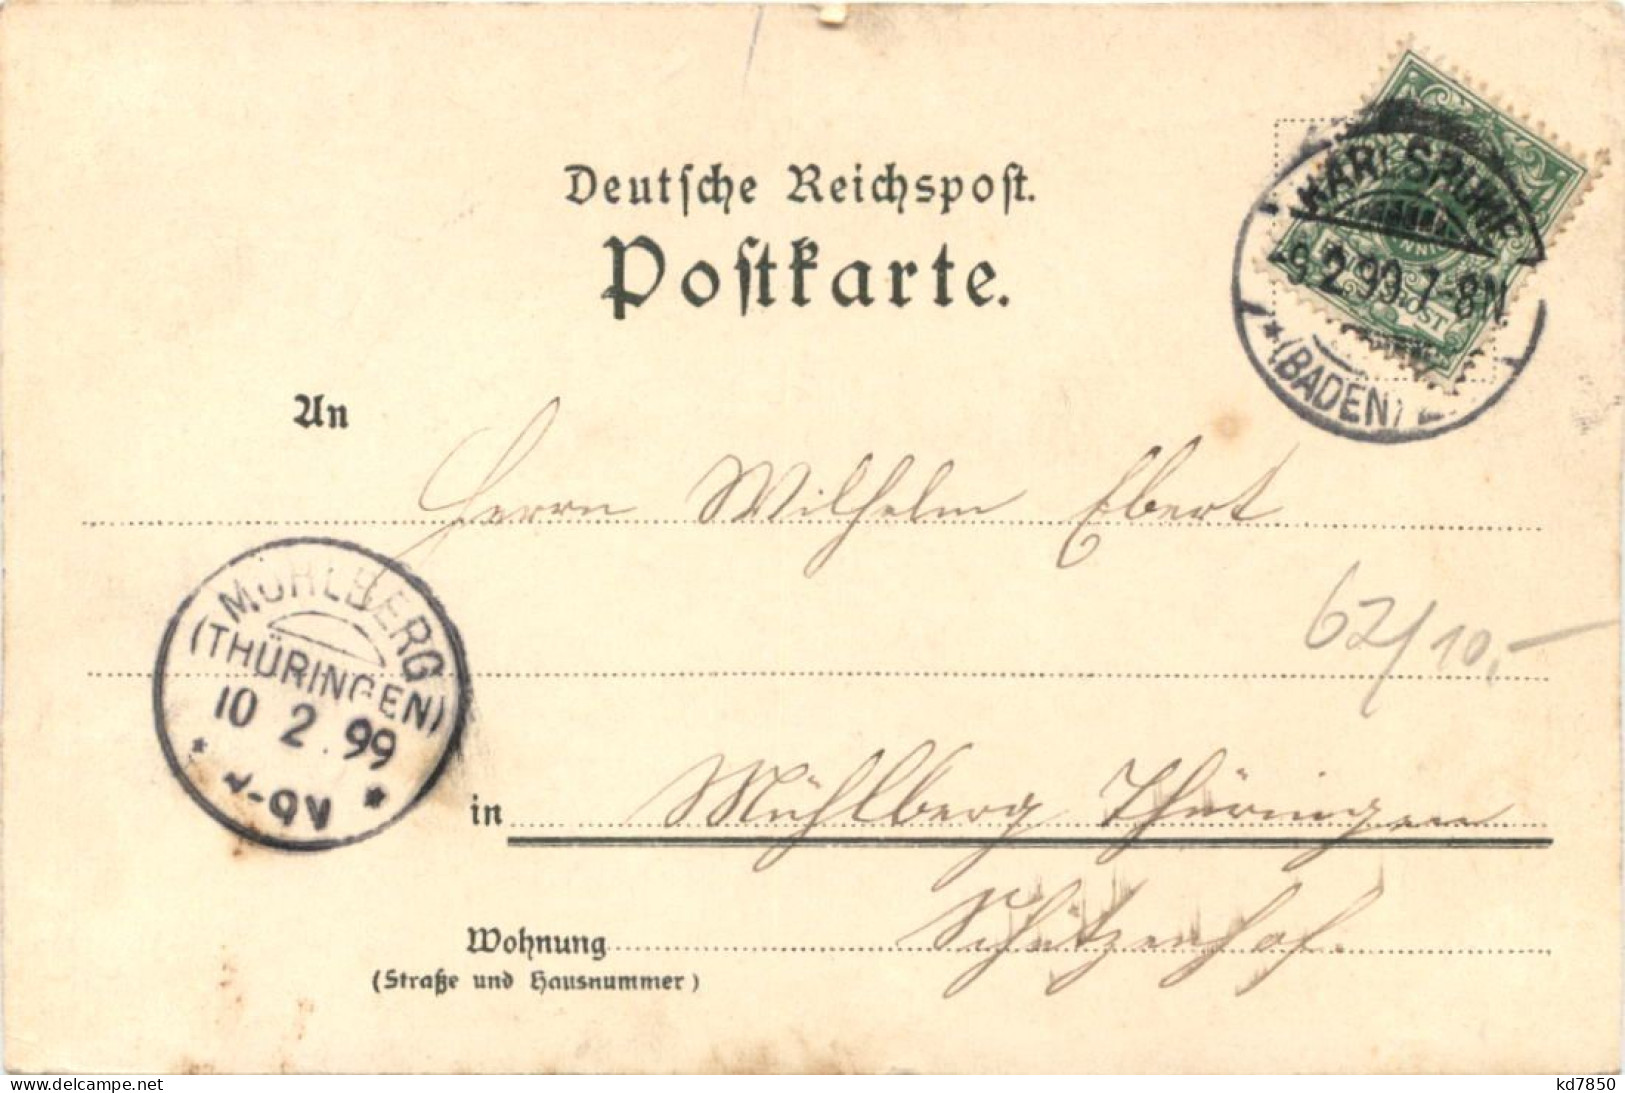 Deutsche Reichspost.
Postkarte.
KARLSRUHE
9.2.99.7-8N
* (BADEN)
An
Herrn Wilhelm Ebert
MÜHLBERG
(THÜRINGEN)
10 2.99
-9V
62/10,-
in Mühlberg Thüringen
Wohnung Schützenhof.
(Straße und Hausnummer)
www.delcampe.net
kd7850